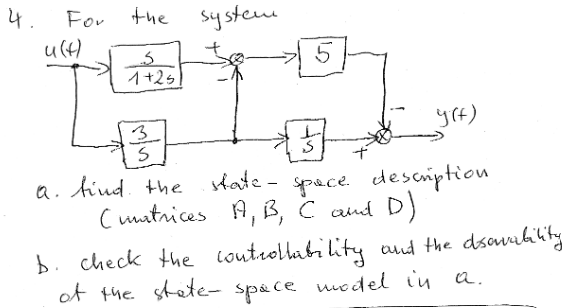 4. For the system
u(t)
s
1+2s
+
-
5
3
s
1
s
+
-
y(t)
a. find the state-space description
(matrices A, B, C and D)
b. check the controllability and the observability
of the state-space model in a.